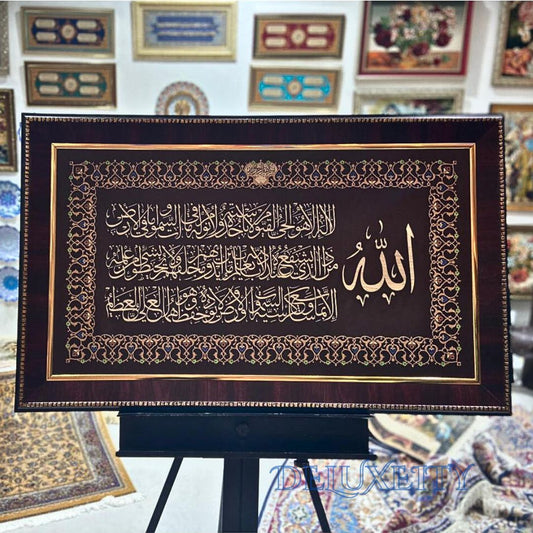 الله
لا إله إلا هو الحي القيوم لا تأخذه سنة ولا نوم له ما في السموات وما في الأرض
من ذا الذي يشفع عنده إلا بإذنه يعلم ما بين أيديهم وما خلفهم ولا يحيطون بشيء من علمه
إلا بما شاء وسع كرسيه السموات والأرض ولا يؤده حفظهما وهو العلي العظيم